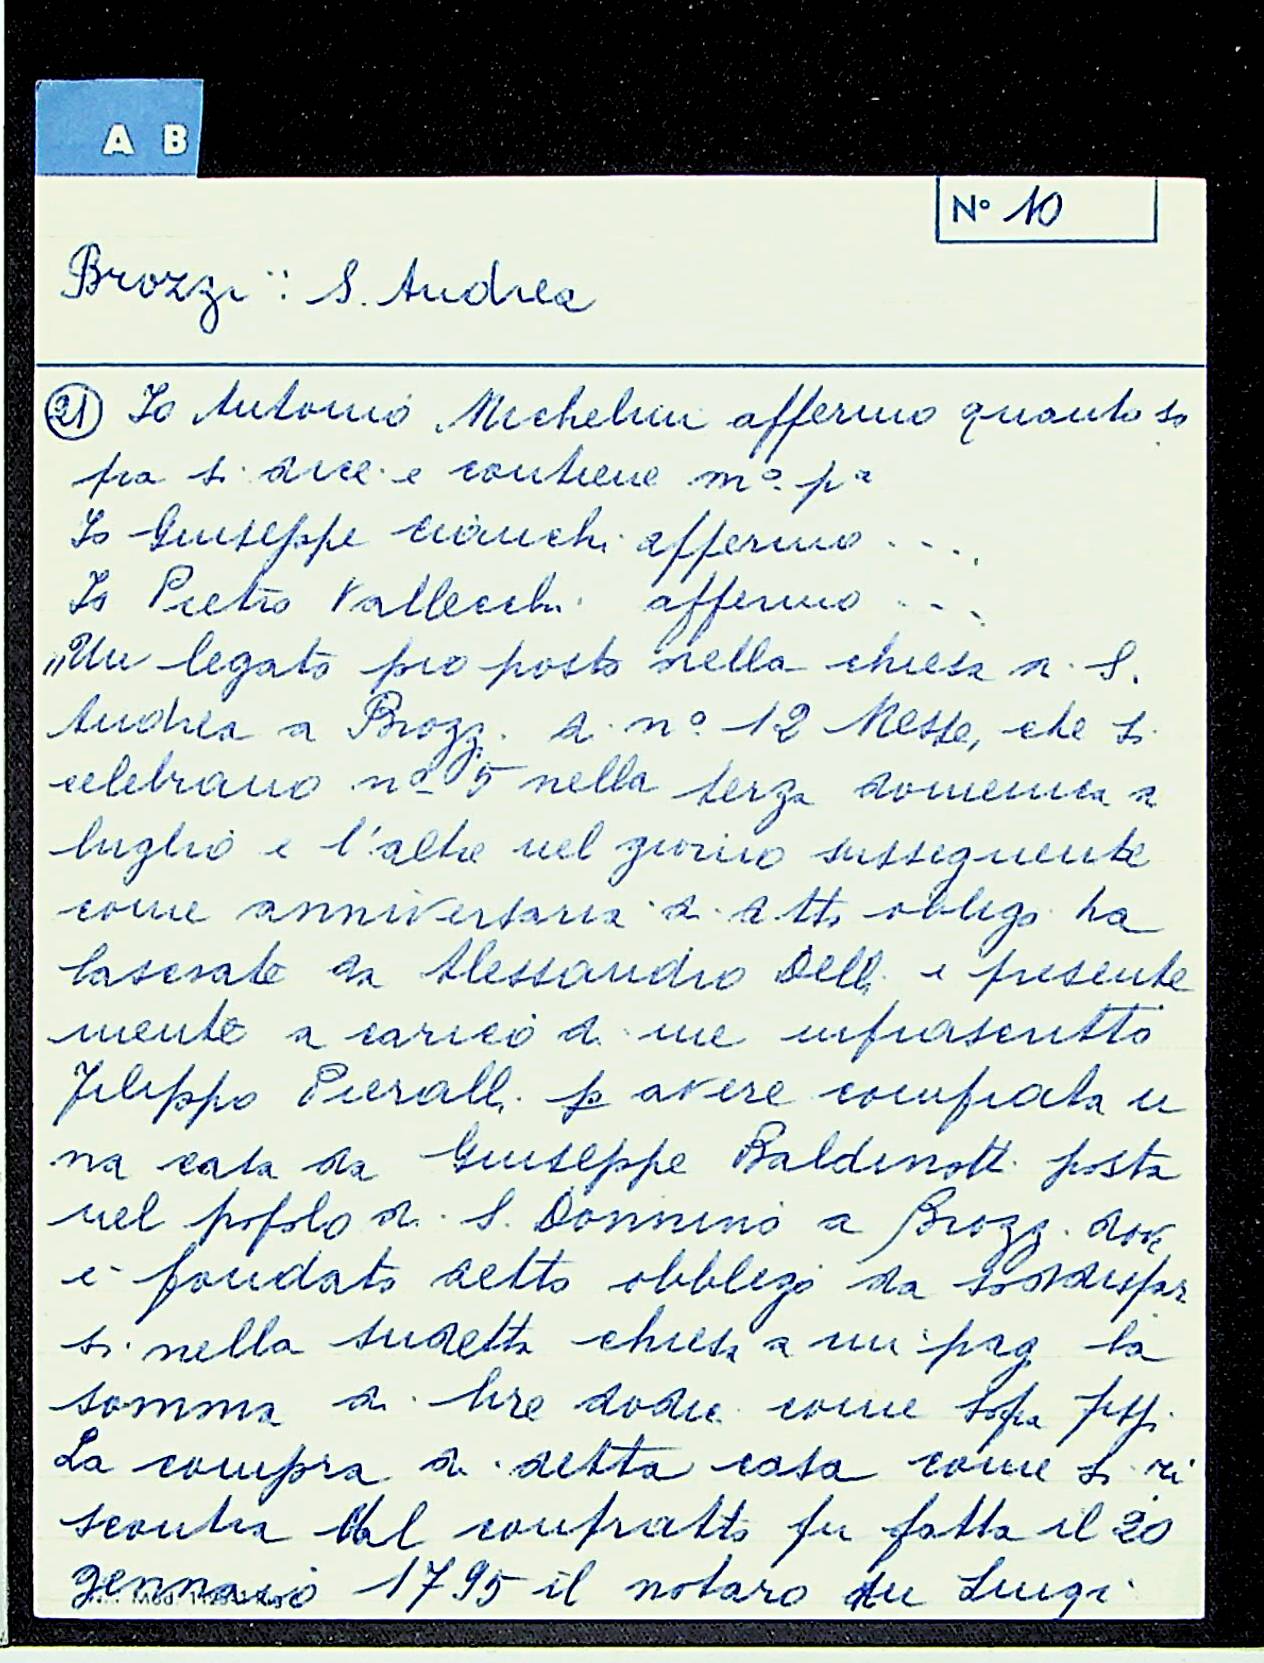 A B
N° 10
Brozzi : S. Andrea
(21) Io Antonio Michelini affermo quanto so
pra si dice e contiene m° p°
Io Giuseppe affermo ....
Io Pietro Vallecchi affermo ....
"Un legato pio posto nella chiesa di S.
Andrea a Brozzi di n° 12 Messe, che si
celebrano n° 5 nella terza domenica di
luglio e l'altre nel giorno susseguente
come anniversaria di obbligo ha
lasciate da Alessandro Delli e presente
mente a carico di me infrascritto
Filippo Pieralli p avere comprata u
na casa da Giuseppe Baldinotti posta
nel popolo di S. Donnino a Brozzi dove
è fondato detto obbligo da
si nella sudetta chiesa di pag la
somma di lire dodici come sopra
La compra di detta casa come si ri
scontra dal contratto fu fatta il 20
gennaio 1795 il notaro fu Luigi